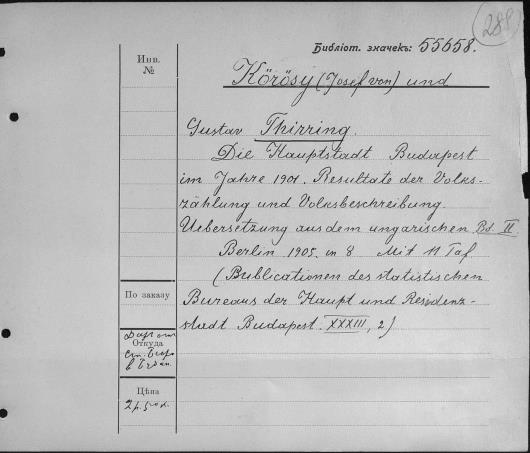 288
Библіот. значекъ: 55658.
Инв.
№
Körösy (Josef von) und
Gustav Thirring.
Die Hauptstadt Budapest
im Jahre 1901. Resultate der Volks-
zählung und Volksbeschreibung.
Uebersetzung aus dem ungarischen Bd. II
Berlin 1905. in 8 Mit 11 Taf
(Publicationen des statistischen
Bureaus der Haupt und Residenz-
stadt Budapest. XXXIII, 2)
По заказу
Откуда
Цѣна
2 р. 50 к.